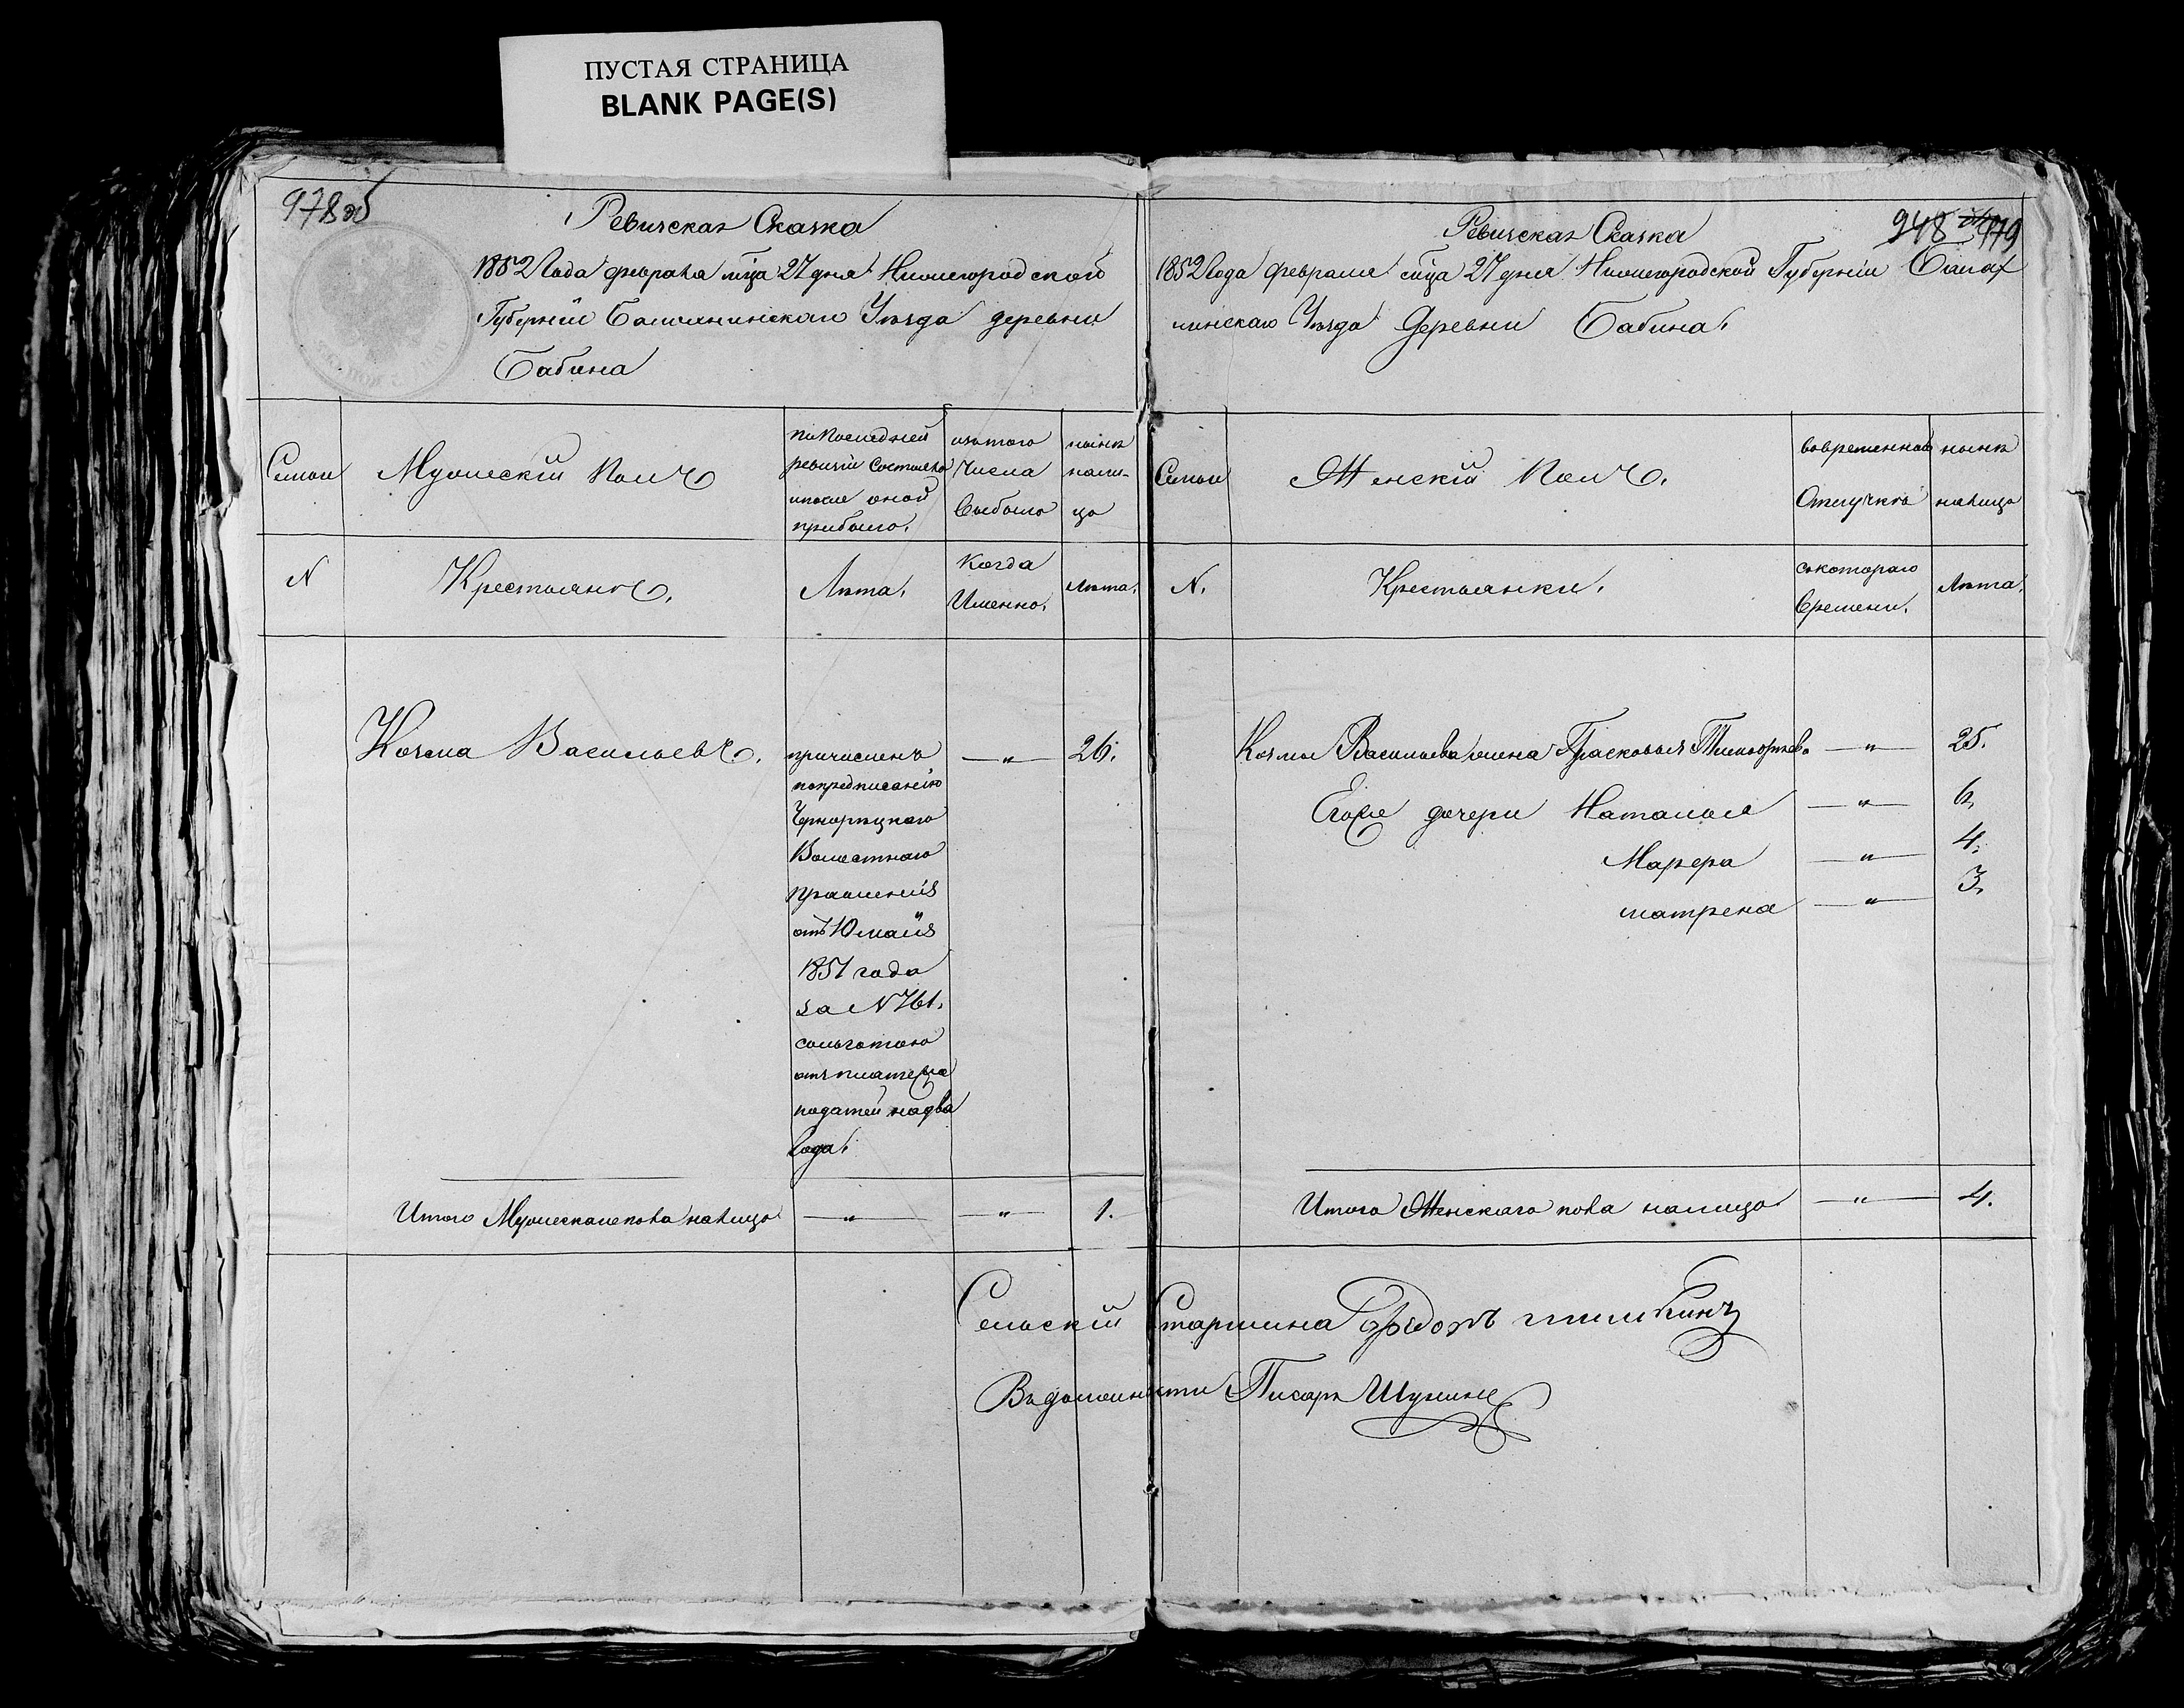 ПУСТАЯ СТРАНИЦА
BLANK PAGE(S)
978 об
Ревизская Сказка
1852 Года февраля мца 27 дня Нижегородской
Губернии Балахнинскаго Уѣзда деревни
Бабина
Семьи
Мужескій Полъ
по последней
ревизіи состояло
и после оной
прибыло.
изъ того
числа
выбыло
нынѣ
нали-
цо
N
Крестьянъ.
Лѣта.
Когда
Именно.
Лѣта.
Козма Васильевъ.
причисленъ
по предписанію
Чернорѣцкаго
Волостнаго
правленія
отъ 10 маія
1851 года
за N 761.
сольготою
отъ платежа
податей на два
года.
— " —
26.
Итого Мужескаго пола налицо
— " —
— " —
1.
948 979
Ревизская Сказка
1852 Года февраля мца 27 дня Нижегородской Губерніи Балах
нинскаго Уѣзда Деревни Бабина.
Семьи
Женскій Полъ.
во временной
Отлучкѣ
нынѣ
налицо
N.
Крестьянки.
съ котораго
времени.
Лѣта.
Козмы Васильева жена Прасковья Тимофѣева — " — 25.
Егоже дочери Наталья — " — 6.
Марфа — " — 4.
матрена — " — 3.
Итого Женскаго пола налицо — " — 4.
Сельскій Старшина
Въ должности Писарь